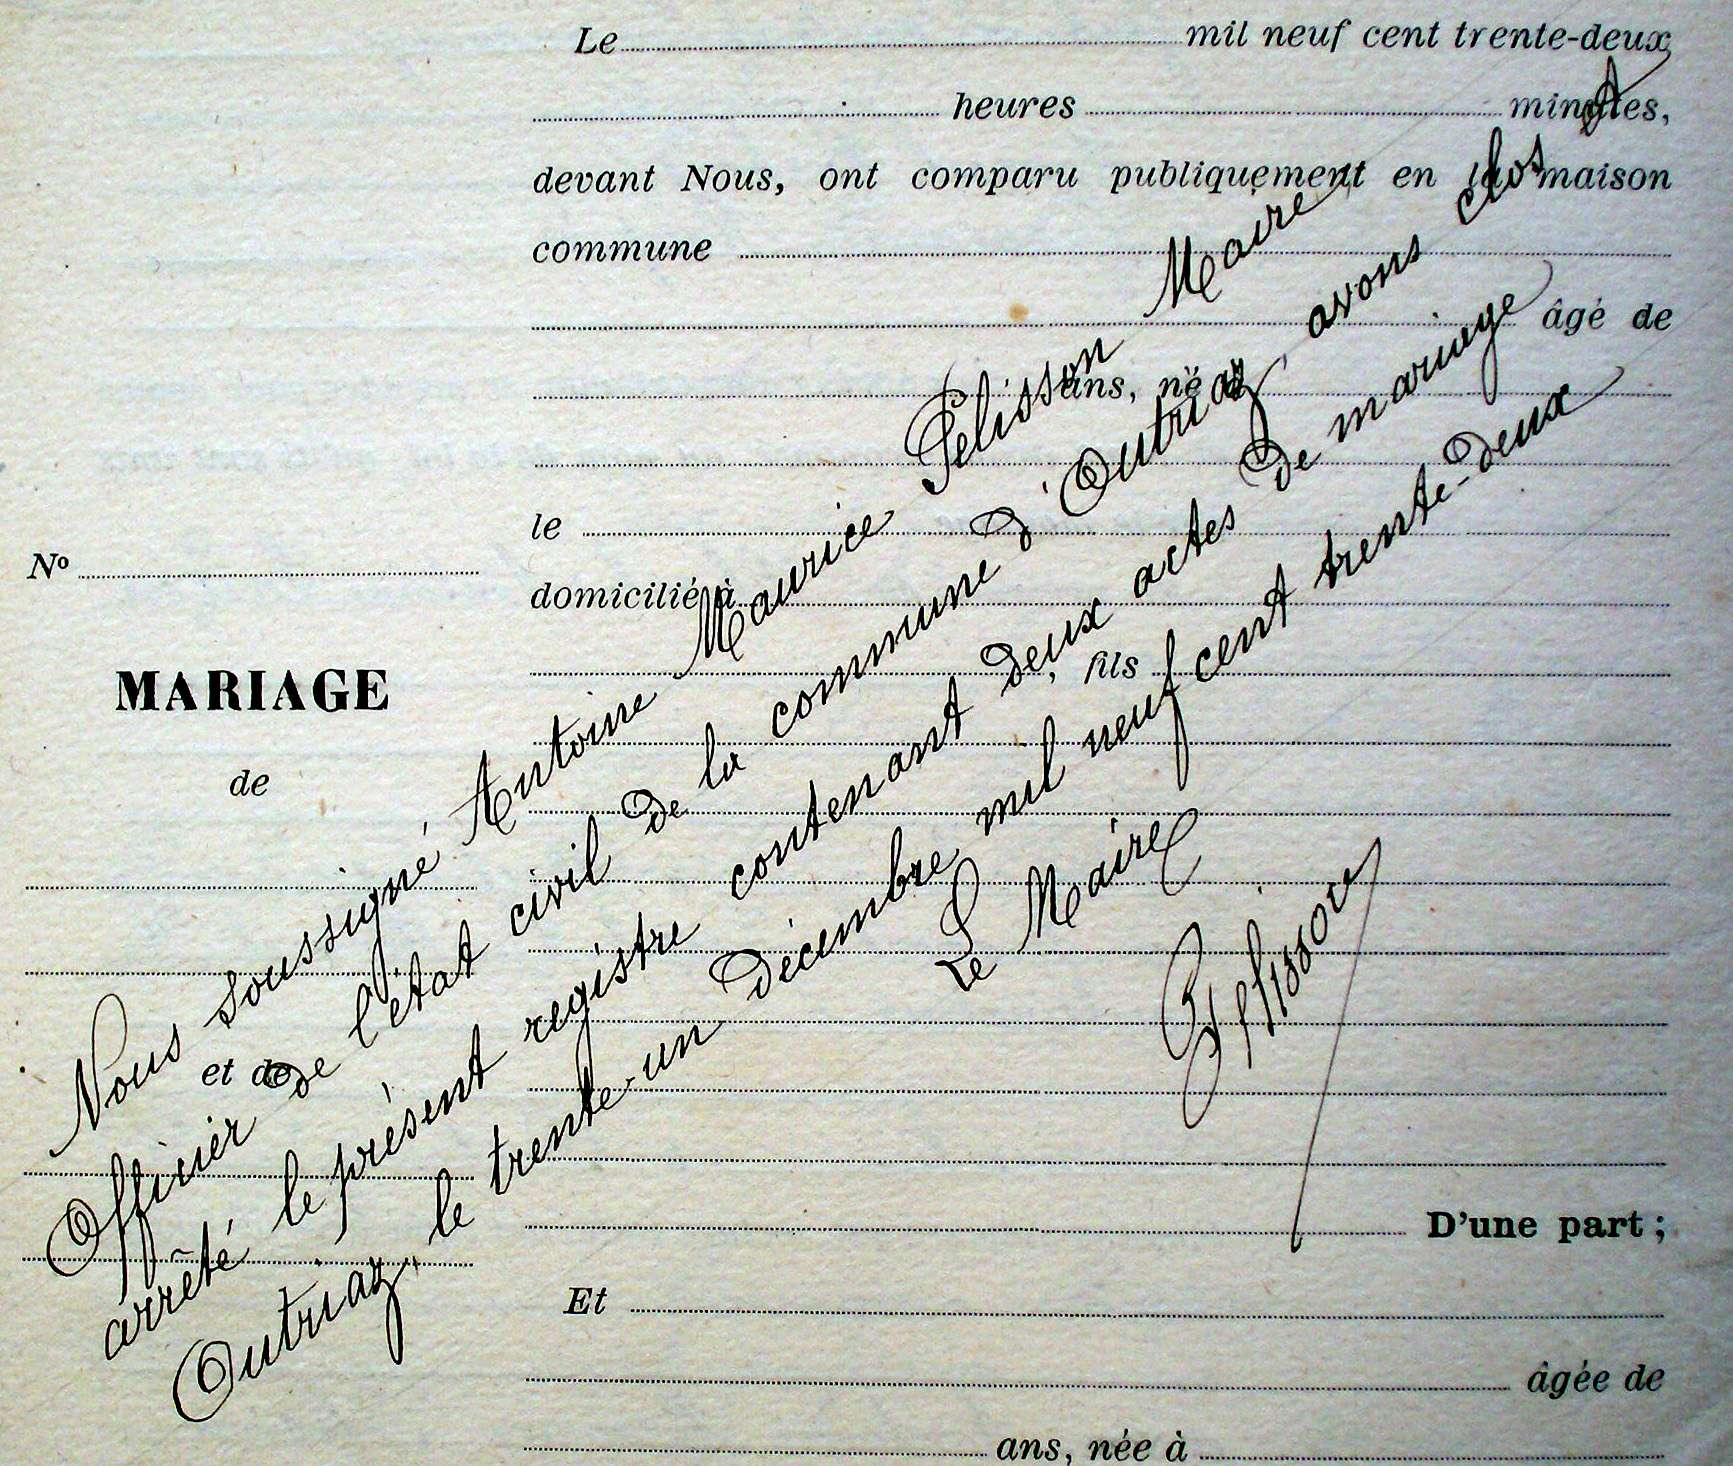 Le mil neuf cent trente-deux
heures minutes,
devant Nous, ont comparu publiquement en la maison
commune
âgé de
ans, né à
le
Nº
domicilié à
, fils
MARIAGE
de
et de
D'une part ;
Et
âgée de
ans, née à
Nous soussigné Antoine Maurice Pelisson Maire,
Officier de l'état civil de la commune d'Outriaz, avons clos et
arrêté le présent registre contenant deux actes de mariage
Outriaz, le trente-un décembre mil neuf cent trente-deux
Le Maire
Pelisson